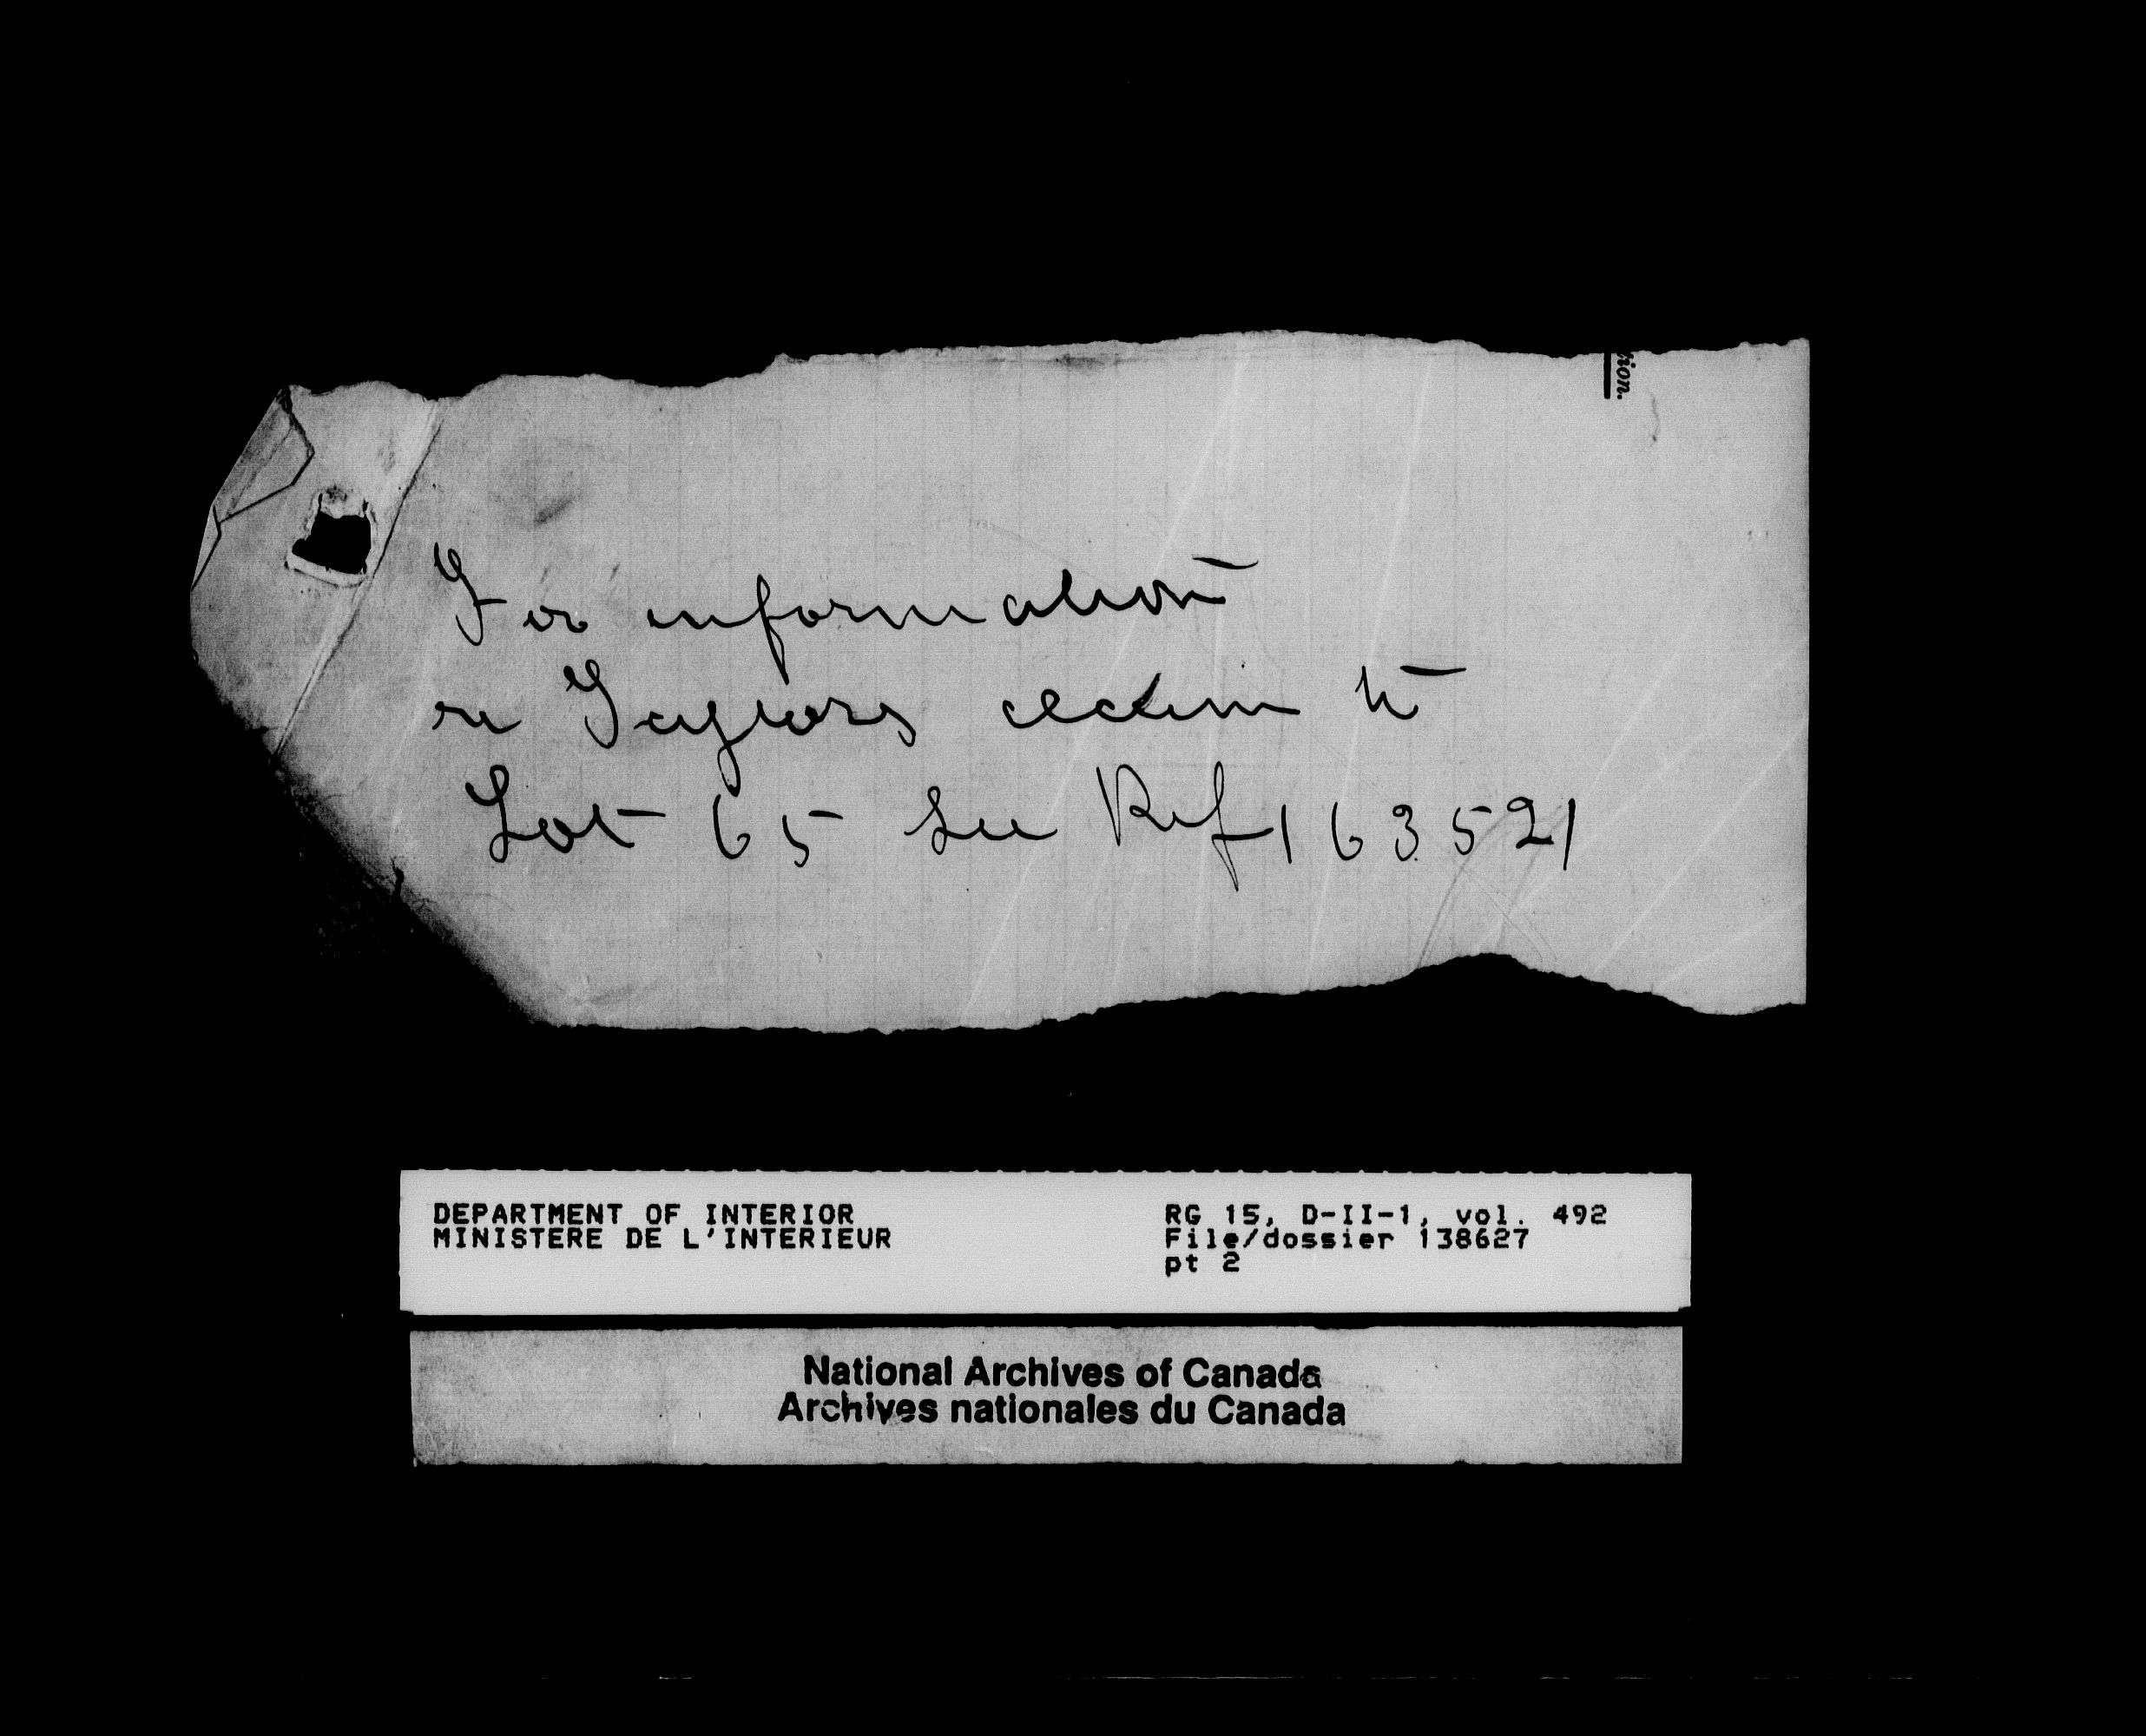 tion.
For information
re Taylors claim to
Lot 65 See Ref 163521
DEPARTMENT OF INTERIOR
MINISTERE DE L'INTERIEUR
RG 15, D-II-1, vol. 492
File/dossier 138627
pt 2
National Archives of Canada
Archives nationales du Canada